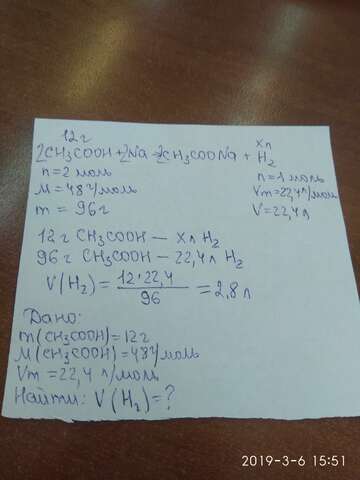 12г
2CH₃COOH + 2Na → 2CH₃COONa + H₂
xл
n = 2 моль
n = 1 моль
M = 48 г/моль
Vm = 22,4 л/моль
m = 96г
V = 22,4 л
12 г CH₃COOH — Xл H₂
96г CH₃COOH — 22,4 л H₂
V(H₂) = 12·22,4 / 96 = 2,8 л
Дано:
m(CH₃COOH) = 12г
M(CH₃COOH) = 48 г/моль
Vm = 22,4 л/моль
Найти: V(H₂) = ?
2019-3-6 15:51